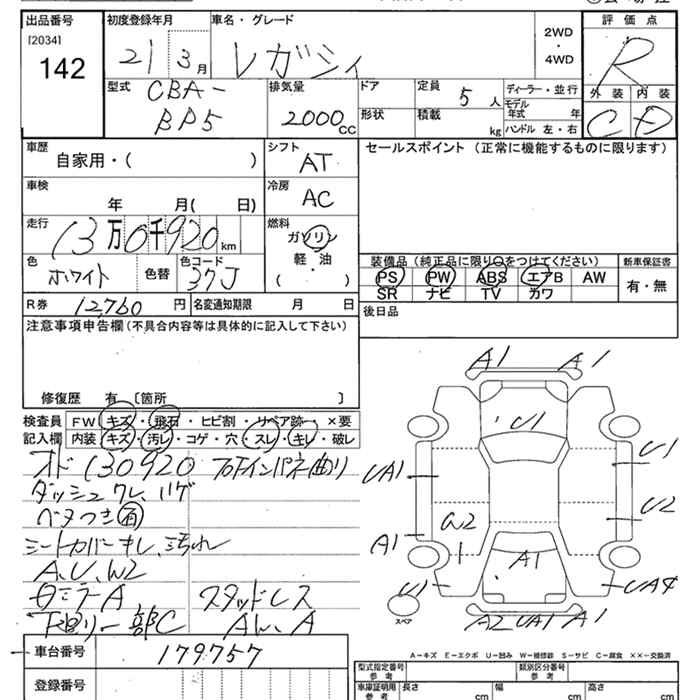 出品番号 初度登録年月 車名・グレード 2WD・4WD 評価点
[2034]
142 21 3月 レガシィ R
型式 排気量 ドア 定員 ディーラー・並行 外装 内装
CBA- 5人 モデル年式 年
BP5 2000cc 形状 積載 kg ハンドル 左・右 C D
車歴 シフト セールスポイント (正常に機能するものに限ります)
自家用・( ) AT
車検 冷房
年 月( 日) AC
走行 燃料
13万0千920km ガソリン
軽・油
( )
色 色コード 装備品 (純正品に限り○をつけてください) 新車保証書
ホワイト 色替 37J PS PW ABS エアB AW 有・無
SR ナビ TV カワ
R券 12,760円 名変通知期限 月 日 後日品
注意事項申告欄(不具合内容等は具体的に記入して下さい)
修復歴 有 [箇所 ]
検査員 FW キズ・飛石・ヒビ割・リペア跡・×要
記入欄 内装 キズ・汚レ・コゲ・穴・スレ・キレ・破レ
オド130920 フロインパネ曲り
ダッシュワレ、ハゲ
ベタつき有
シートカバーキレ、汚れ
A、U、W2
ミラーA スタッドレス
下回り一部C
A1 A1
U1
UA1 U1
W2 U2
A1
A1
U1 UA4
スペア A2 UA1 A1
A-キズ E-エクボ U-凹み W-補修跡 S-サビ C-腐食 ××-交換済
車台番号 179757
登録番号
型式指定番号 参考 類別区分番号 参考
車庫証明用 参考 長さ cm 幅 cm 高さ cm